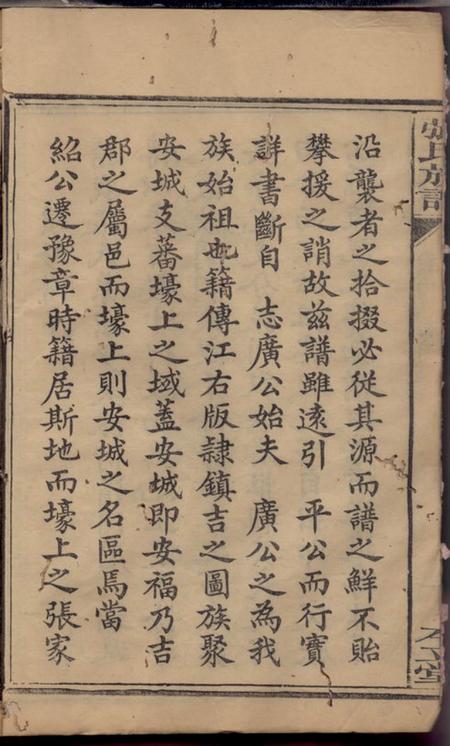 氏族譜
沿襲者之拾掇必從其源而譜之鮮不貽
攀援之誚故兹譜雖遠引　平公而行實
詳書斷自　志廣公始夫　廣公之為我
族始祖也籍傳江右版隸鎮吉之圖族聚
安城支蕃壕上之域蓋安城即安福乃吉
郡之屬邑而壕上則安城之名區焉當
紹公遷豫章時籍居斯地而壕上之張家